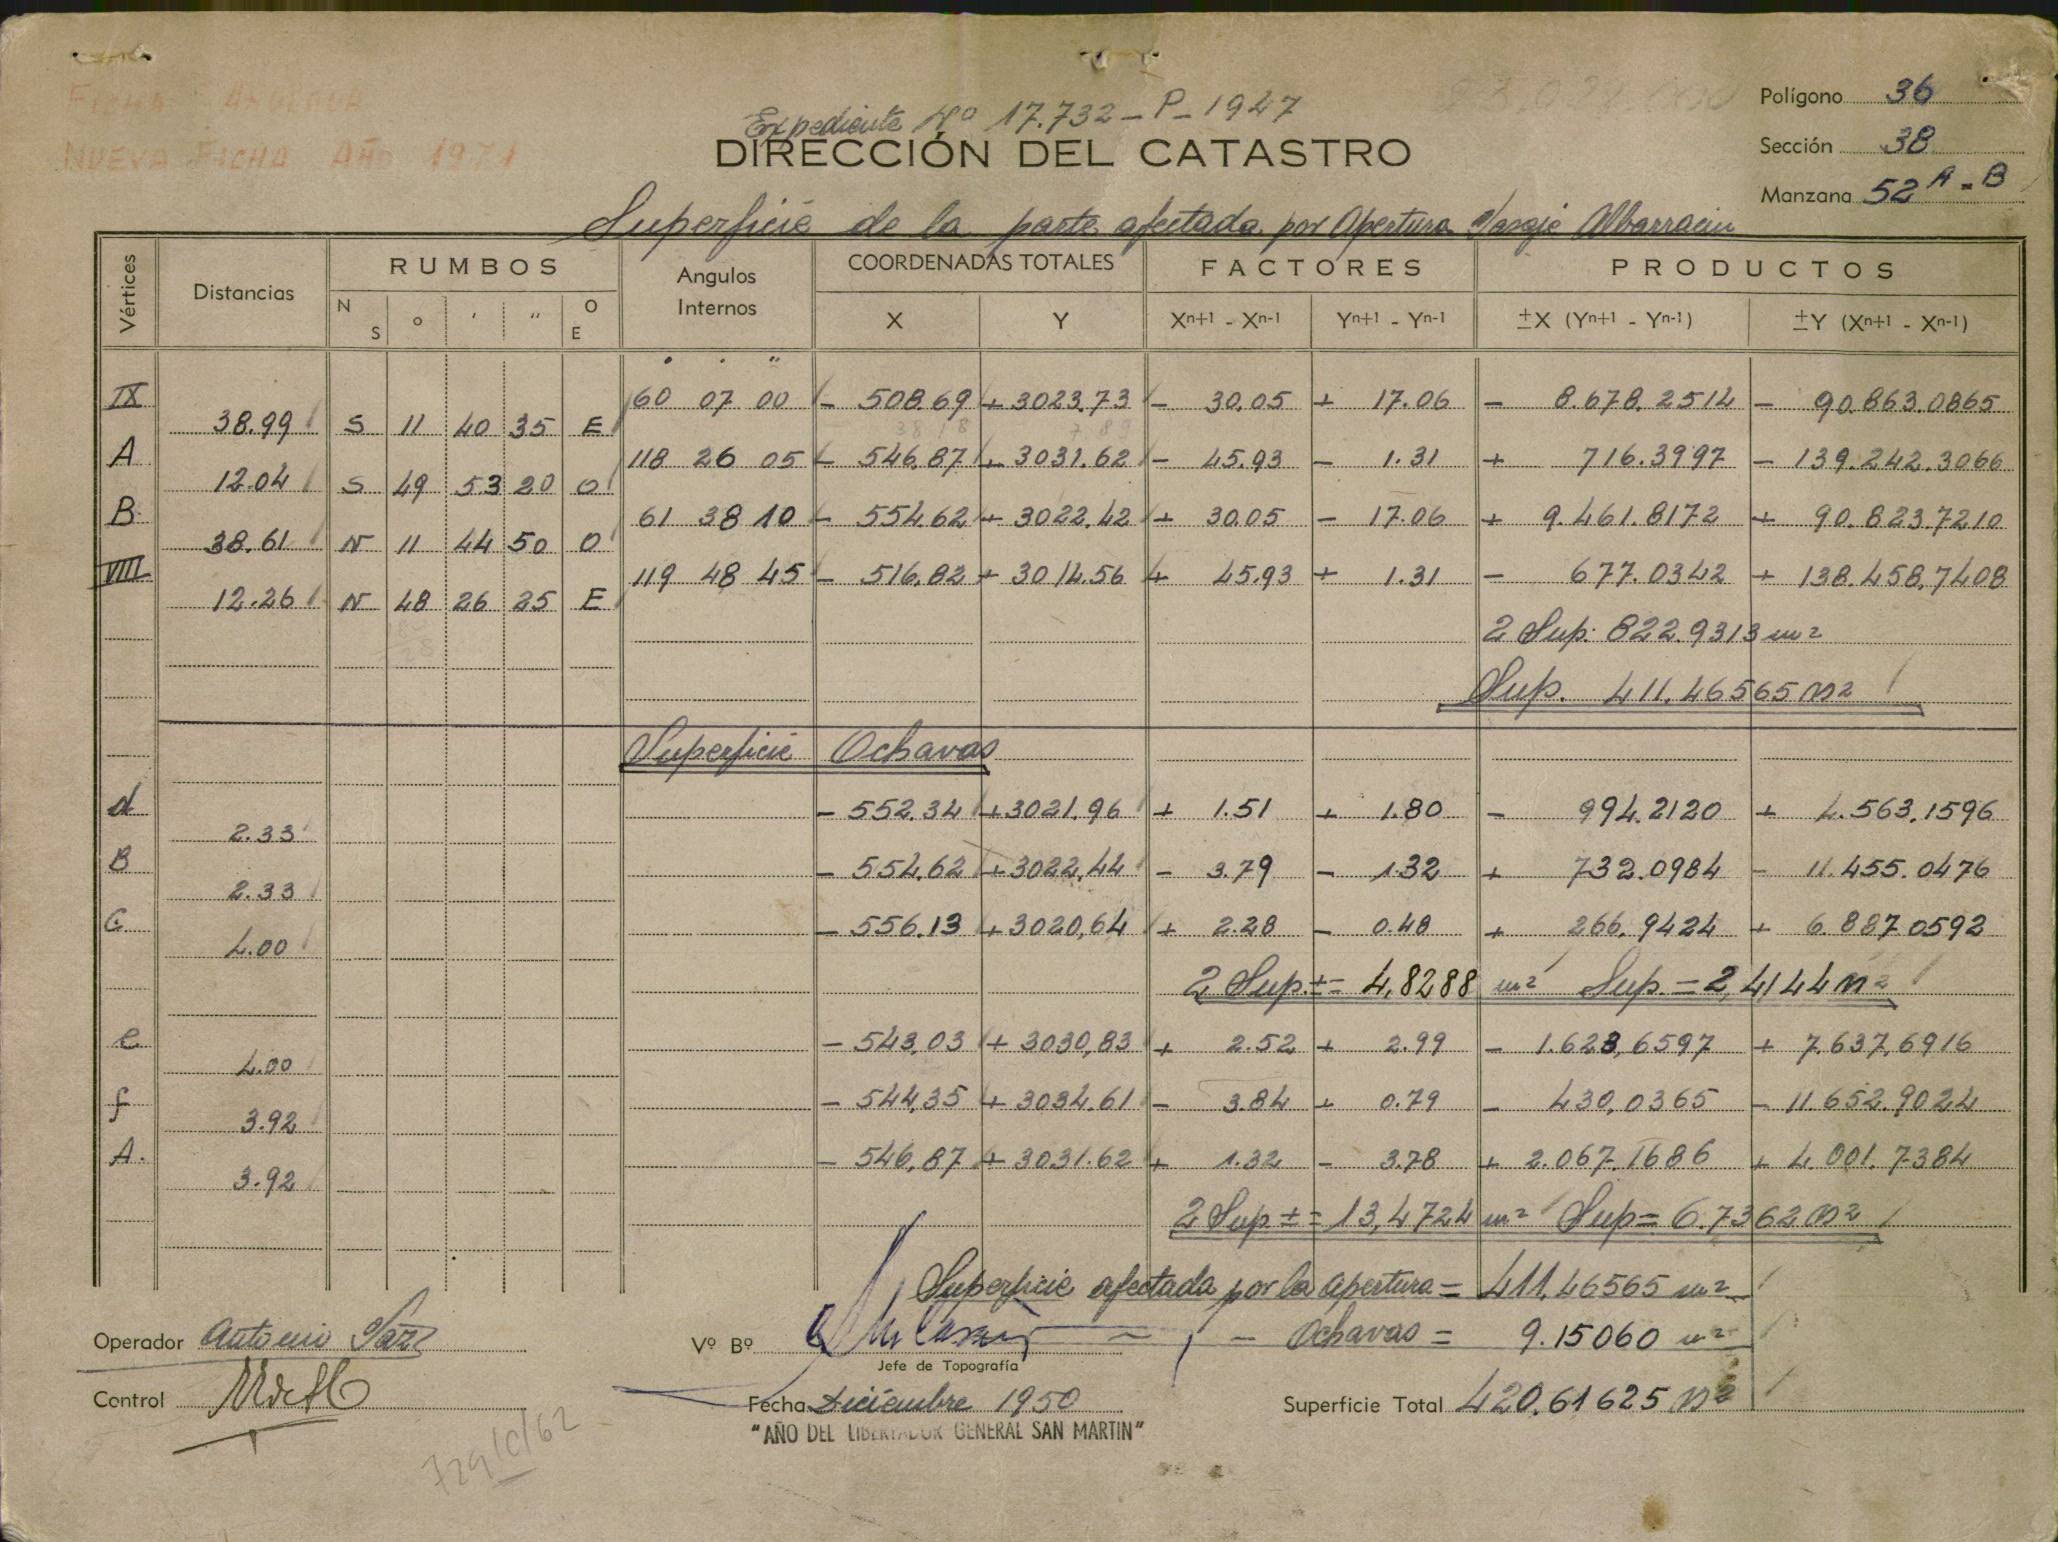 NUEVA FICHA AÑO 1971
Expediente Nº 17.732 - P - 1947
DIRECCIÓN DEL CATASTRO
Polígono 36
Sección 38
Manzana 52 A - B
Superficie de la parte afectada por Apertura Pasaje Albarracin
Vértices Distancias RUMBOS Angulos Internos COORDENADAS TOTALES FACTORES PRODUCTOS
N S ° ' " O E X Y Xn+1 - Xn-1 Yn+1 - Yn-1 ±X (Yn+1 - Yn-1) ±Y (Xn+1 - Xn-1)
IX 60 07 00 - 508.69 + 3023.73 - 30.05 + 17.06 - 8.678.2514 - 90.863.0865
38.99 S 11 40 35 E
A 118 26 05 - 546.87 + 3031.62 - 45.93 - 1.31 + 716.3997 - 139.242.3066
12.04 S 49 53 20 O
B 61 38 10 - 554.62 + 3022.42 + 30.05 - 17.06 + 9.461.8172 + 90.823.7210
38.61 N 11 44 50 O
VIII 119 48 45 - 516.82 + 3014.56 + 45.93 + 1.31 - 677.0342 + 138.458.7408
12.26 N 48 26 25 E
2 Sup. 822.9313 m2
Sup. 411.46565 m2
Superficie Ochavas
d - 552.34 + 3021.96 + 1.51 + 1.80 - 994.2120 + 4.563.1596
2.33
B - 554.62 + 3022.44 - 3.79 - 1.32 + 732.0984 - 11.455.0476
2.33
C - 556.13 + 3020,64 + 2.28 - 0.48 + 266.9424 + 6.887.0592
4.00
2 Sup. ± = 4,8288 m2 Sup. = 2,4144 m2
e - 543,03 + 3030,83 + 2.52 + 2.99 - 1.623,6597 + 7.637,6916
4.00
f - 544,35 + 3034.61 - 3.84 + 0.79 - 430,0365 - 11.652.9024
3.92
A. - 546,87 + 3031.62 + 1.32 - 3.78 + 2.067.1686 + 4.001.7384
3.92
2 Sup ± = 13,4724 m2 Sup = 6.7362 m2
Superficie afectada por la apertura = 411.46565 m2
- Ochavas = 9.15060 m2
Operador Antonio
Vº Bº
Jefe de Topografía
Control
Fecha Diciembre 1950
Superficie Total 420.61625 m2
"AÑO DEL LIBERTADOR GENERAL SAN MARTIN"
729/C/62